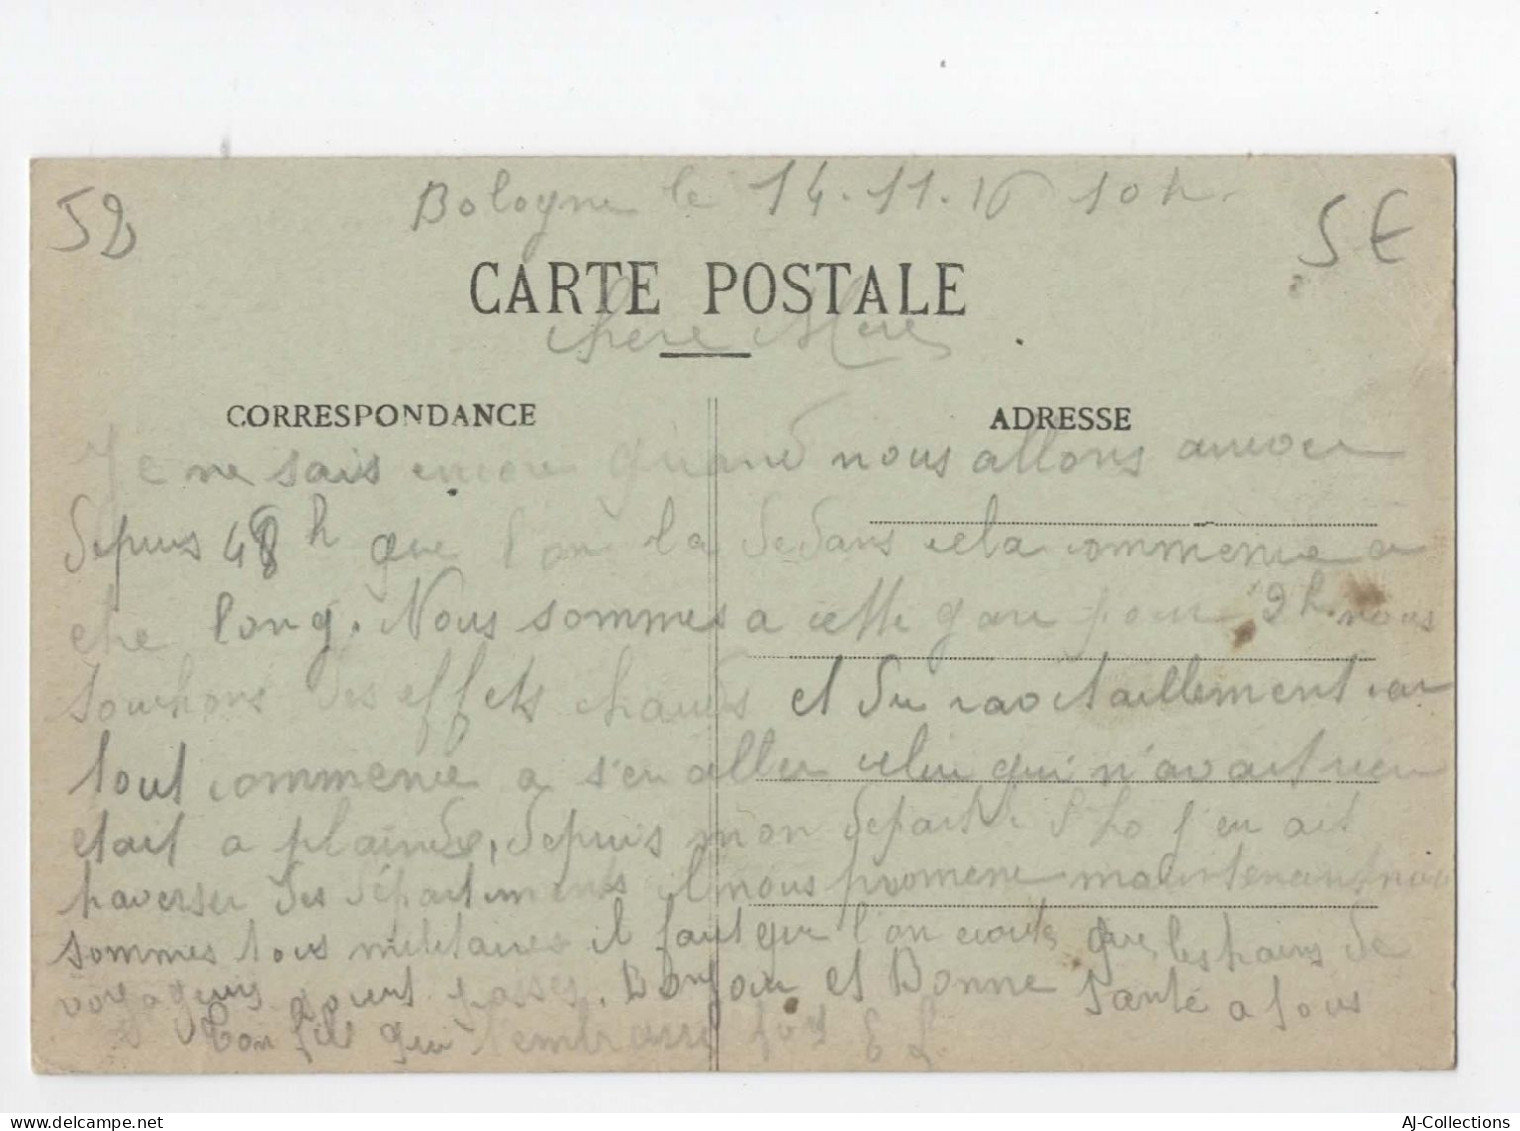 52
Bologne le 14.11.16 10h.
5€
CARTE POSTALE
Chere Mere
CORRESPONDANCE
ADRESSE
Je ne sais encore quand nous allons
depuis 48h que l'on la dedans cela commence a
etre long. Nous sommes a cette gare pour 9h. nous
touchons des effets chauds et du ravitaillement car
tout commence a s'en aller celui qui n'avait rien
etait a plaindre, depuis mon depart j'en ait
traverser des départements il nous promene maintenant nous
sommes tous militaires il faut que l'on que les trains de
voyageurs passes. Bonjour et Bonne Santé a tous
Ton fils qui t'embrasse E L
AJ-Collections
delcampe.net